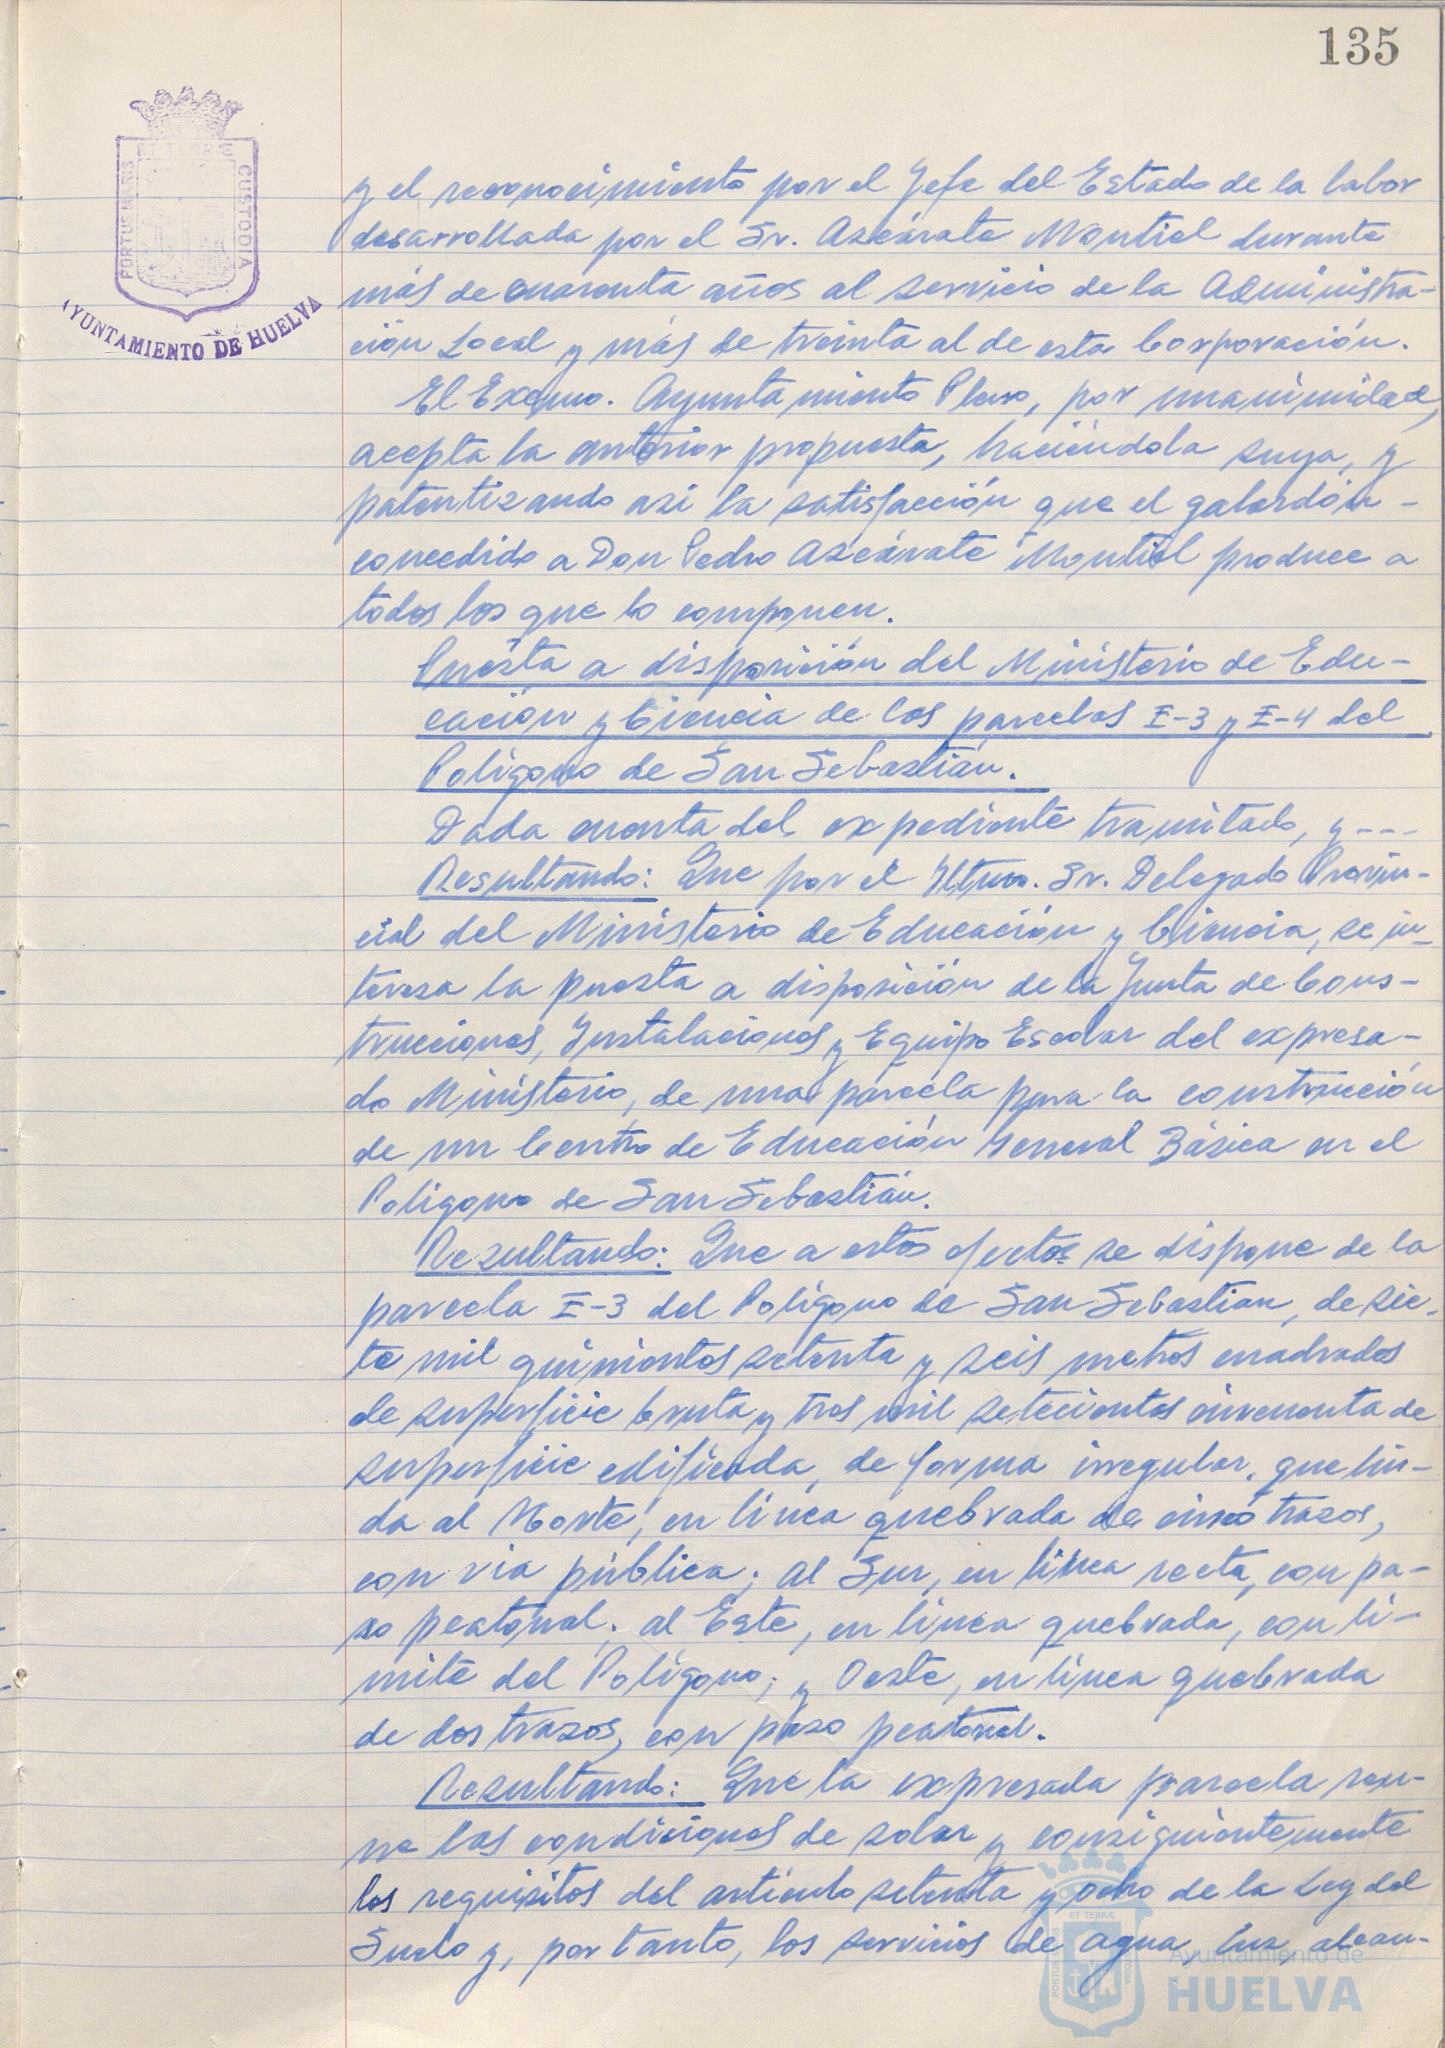 135
ET TERRÆ
PORTUS MARIS
CUSTODIA
AYUNTAMIENTO DE HUELVA
y el reconocimiento por el Jefe del Estado de la labor
desarrollada por el Sr. Azcárate Montiel durante
más de cuarenta años al servicio de la Administra-
ción Local y más de treinta al de esta Corporación.
El Excmo. Ayuntamiento Pleno, por unanimidad,
acepta la anterior propuesta, haciéndola suya, y
patentizando así la satisfacción que el galardón -
concedido a Don Pedro Azcárate Montiel produce a
todos los que lo componen.
Puesta a disposición del Ministerio de Edu-
cación y Ciencia de las parcelas E-3 y E-4 del
Polígono de San Sebastián.
Dada cuenta del expediente tramitado, y ---
Resultando: Que por el Iltmo. Sr. Delegado Provin-
cial del Ministerio de Educación y Ciencia, se in-
teresa la puesta a disposición de la Junta de Cons-
trucciones, Instalaciones y Equipo Escolar del expresa-
do Ministerio, de una parcela para la construcción
de un Centro de Educación General Básica en el
Polígono de San Sebastián.
Resultando: Que a estos efectos se dispone de la
parcela E-3 del Polígono de San Sebastián, de sie-
te mil quinientos setenta y seis metros cuadrados
de superficie bruta y tres mil setecientos cincuenta de
superficie edificada, de forma irregular, que lin-
da al Norte, en línea quebrada de cinco trazos,
con vía pública; al Sur, en línea recta, con pa-
so peatonal; al Este, en línea quebrada, con lí-
mite del Polígono; y Oeste, en línea quebrada
de dos trazos, con paso peatonal.
Resultando: Que la expresada parcela reu-
ne las condiciones de solar y consiguientemente
los requisitos del artículo setenta y ocho de la Ley del
Suelo y, por tanto, los servicios de agua, luz, alcan-
ET TERRÆ
Ayuntamiento de
HUELVA